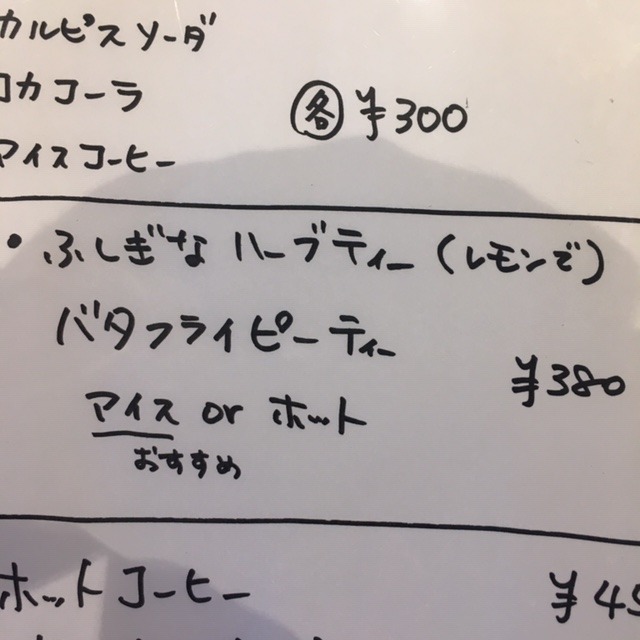 カルピスソーダ
コカコーラ
㊝ ¥300
アイスコーヒー
・ふしぎな ハーブティー (レモンで)
バタフライピーティー
¥380
アイス or ホット
おすすめ
ホットコーヒー
¥45